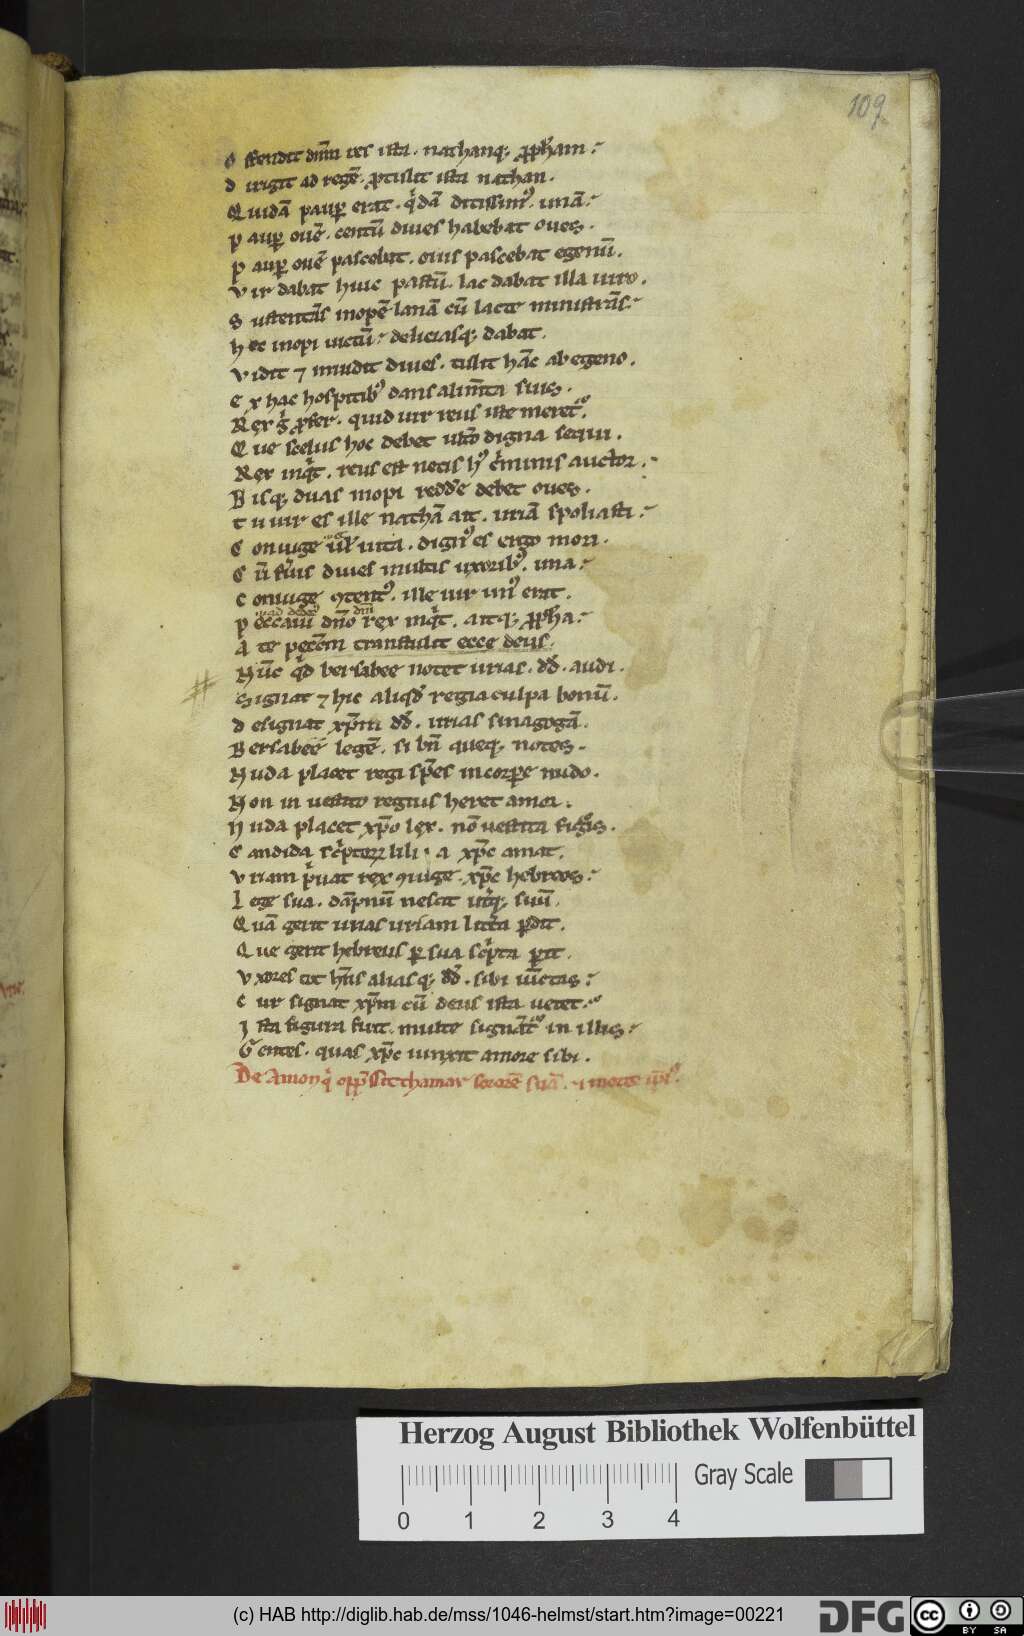 109
O ffendit dn̄m res ista . nathanq; ꝓph̄am :
d irigit ad regē . ꝓtulit ista nathan .
Quidā paup̄ erat . q'dā ditissim' . unā :
p aup̄ ouē . centū diues habebat oues .
p aup̄ ouē pascebat . ouis pascebat egenū .
v ir dabat huic pastū . lac dabat illa uiro .
S ustentās inopē lanā cū lacte ministrās :
h ec inopi uictū : deliciasq; dabat .
v idit ⁊ inuidit diues . tulit hāc ab egeno .
e x hac hospitib' dans alim̄ta suis .
Rex g̊ ꝓfer . quid uir reus iste meret' .
Que scelus hoc debet ult̄o digna sequi .
Rex inq't . reus est necis h' c'minis auctor .
B isq; duas inopi redd̄e debet oues .
t u uir es ille nathā ait . uriā spoliasti :
C oniuge ul' uita . dign' es ergo mori .
C ū fu'is diues multis uxorib' . una :
c oniuge ꝯtent' . ille uir un' erat .
p eccaui dn̄o rex inq't . aitq; ꝓph̄a :
A te peccm̄ transtulit ecce deus .
N ūc q'd bersabee notet urias . dd̄ . audi .
Signat ⁊ hic aliqd̄ regia culpa bonū .
d esignat xp̄m dd̄ . urias sinagogā .
Bersabeē legē . si bn̄ queq; notes .
N uda placet regi sp̄es in corꝑe nudo .
N on in uestito regius heret amor .
N uda placet xp̄o lex . nō uestita figuris .
C andida sc'ptoꝝ lili a xp̄c amat .
v riam p'uat rex ꝯiuge . xp̄c hebreos :
l ege sua . dāpnū nescit ut'q; suū .
Quā gerit urias uriam litt̄a ꝑdit .
Que gerit hebreus ꝑ sua sc'pta ꝑit .
v xores tot hn̄s aliasq; dd̄ . sibi iūctas :
c ur signat xp̄m cū deus ista uetet .
I sta figura fuit . multe signāt' in illis :
Gentes . quas xp̄c iunxit amore sibi .
De Amon q' opp̄ssit thamar sororē suā . ⁊ morte ip̄i' .
Herzog August Bibliothek Wolfenbüttel
Gray Scale
0 1 2 3 4
(c) HAB http://diglib.hab.de/mss/1046-helmst/start.htm?image=00221
DFG
cc BY SA